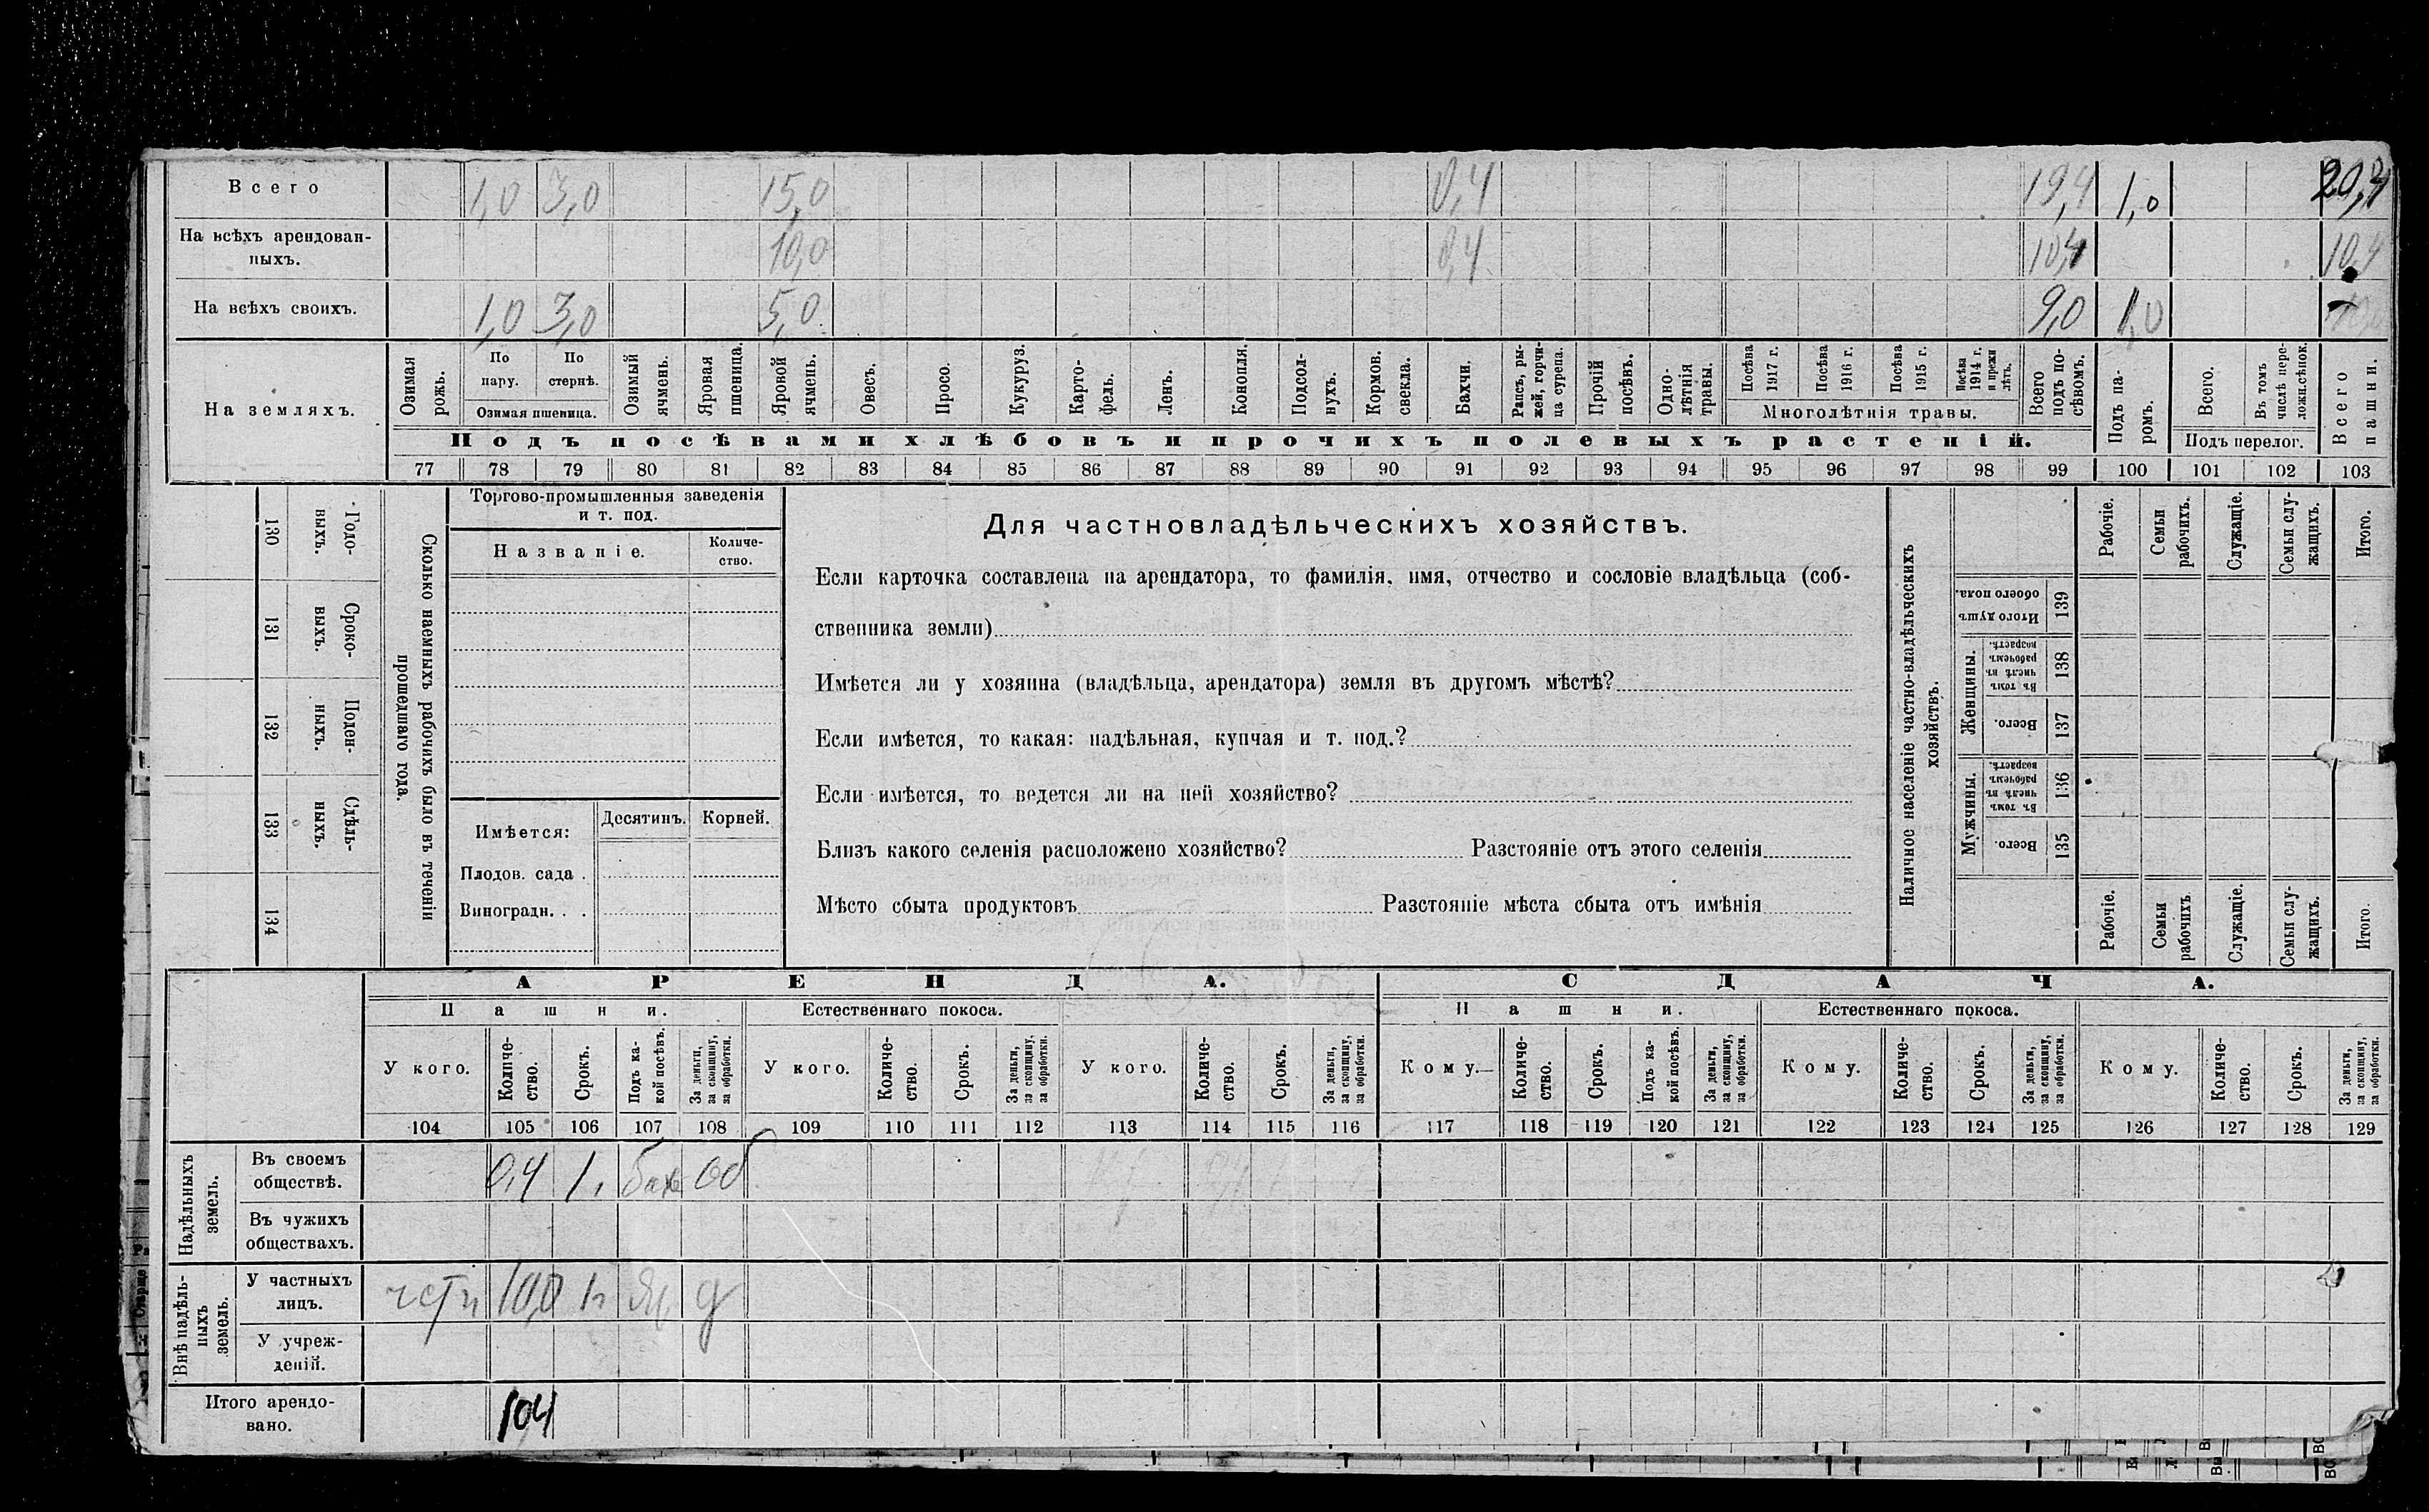 Всего 1,0 3,0 15,0 0,4 19,4 1,0 20,4
На всѣхъ арендован-
ныхъ. 10,0 0,4 10,4 10,4
На всѣхъ своихъ. 1,0 3,0 5,0 9,0 1,0
На земляхъ.
Озимая рожь.
По пару.
По стернѣ.
Озимая пшеница.
Озимый ячмень.
Яровая пшеница.
Яровой ячмень.
Овесъ.
Просо.
Кукуруз.
Карто-
фель.
Ленъ.
Конопля.
Подсол-
нухъ.
Кормов.
свекла.
Бахчи.
Рапсъ, ры-
жей, горчи-
ца сурепа.
Прочій
посѣвъ.
Одно-
лѣтнія
травы.
Посѣва
1917 г.
Посѣва
1916 г.
Посѣва
1915 г.
Посѣва
1914 г.
и прежн
лѣтъ.
Многолѣтнія травы.
Всего
подъ по-
сѣвомъ.
Подъ па-
ромъ.
Всего.
Въ томъ
числѣ пере-
ложн.сѣнок.
Подъ перелог.
Всего
пашни.
Подъ посѣвами хлѣбовъ и прочихъ полевыхъ растеній.
77 78 79 80 81 82 83 84 85 86 87 88 89 90 91 92 93 94 95 96 97 98 99 100 101 102 103
130 Годо-
выхъ.
131 Сроко-
выхъ.
132 Поден-
ныхъ.
133 Сдѣль-
ныхъ.
134
Сколько наемныхъ рабочихъ было въ теченіи
прошедшаго года.
Торгово-промышленныя заведенія
и т. под.
Названіе.
Количе-
ство.
Имѣется:
Десятинъ.
Корней.
Плодов. сада .
Виноградн. . .
Для частновладѣльческихъ хозяйствъ.
Если карточка составлена на арендатора, то фамилія, имя, отчество и сословіе владѣльца (соб-
ственника земли)
Имѣется ли у хозяина (владѣльца, арендатора) земля въ другомъ мѣстѣ?
Если имѣется, то какая: надѣльная, купчая и т. под.?
Если имѣется, то ведется ли на ней хозяйство?
Близъ какого селенія расположено хозяйство? Разстояніе отъ этого селенія
Мѣсто сбыта продуктовъ Разстояніе мѣста сбыта отъ имѣнія
Наличное населеніе частно-владѣльческихъ
хозяйствъ.
Рабочіе.
Семьи
рабочихъ.
Служащіе.
Семьи слу-
жащихъ.
Итого.
Итого душъ
обоего пола.
139
Женщины.
Въ томъ
числѣ въ
рабочемъ
возрастѣ.
138
Всего.
137
Мужчины.
Въ томъ
числѣ въ
рабочемъ
возрастѣ.
136
Всего.
135
Рабочіе.
Семьи
рабочихъ
Служащіе.
Семьи слу-
жащихъ.
Итого.
АРЕНДА. СДАЧА.
Пашни. Естественнаго покоса. Пашни. Естественнаго покоса.
У кого.
Количе-
ство.
Срокъ.
Подъ ка-
кой посѣвъ.
За деньги,
за скопщину,
за обработки.
У кого.
Количе-
ство.
Срокъ.
За деньги,
за скопщину,
за обработки.
У кого.
Количе-
ство.
Срокъ.
За деньги,
за скопщину,
за обработки.
Кому.
Количе-
ство.
Срокъ.
Подъ ка-
кой посѣвъ.
За деньги,
за скопщину,
за обработки.
Кому.
Количе-
ство.
Срокъ.
За деньги,
за скопщину,
за обработки.
Кому.
Количе-
ство.
Срокъ.
За деньги,
за скопщину,
за обработки.
104 105 106 107 108 109 110 111 112 113 114 115 116 117 118 119 120 121 122 123 124 125 126 127 128 129
Надѣльныхъ
земель.
Въ своемъ
обществѣ. 0,4 1 бах об
Въ чужихъ
обществахъ.
Внѣ надѣль-
ныхъ
земель.
У частныхъ
лицъ. 10,0 Яч д
У учреж-
деній.
Итого арендо-
вано. 10,4